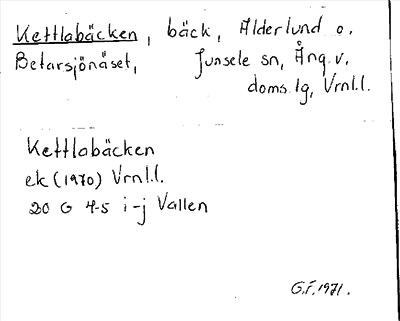 Kettlabäcken, bäck, Alderlund o.
Betarsjönäset, Junsele sn, Ång. v.
doms. lg, Vrnl.l.
Kettlabäcken
ek (1970) Vrnl.l.
20 G 4-5 i-j Vallen
G.F. 1971.